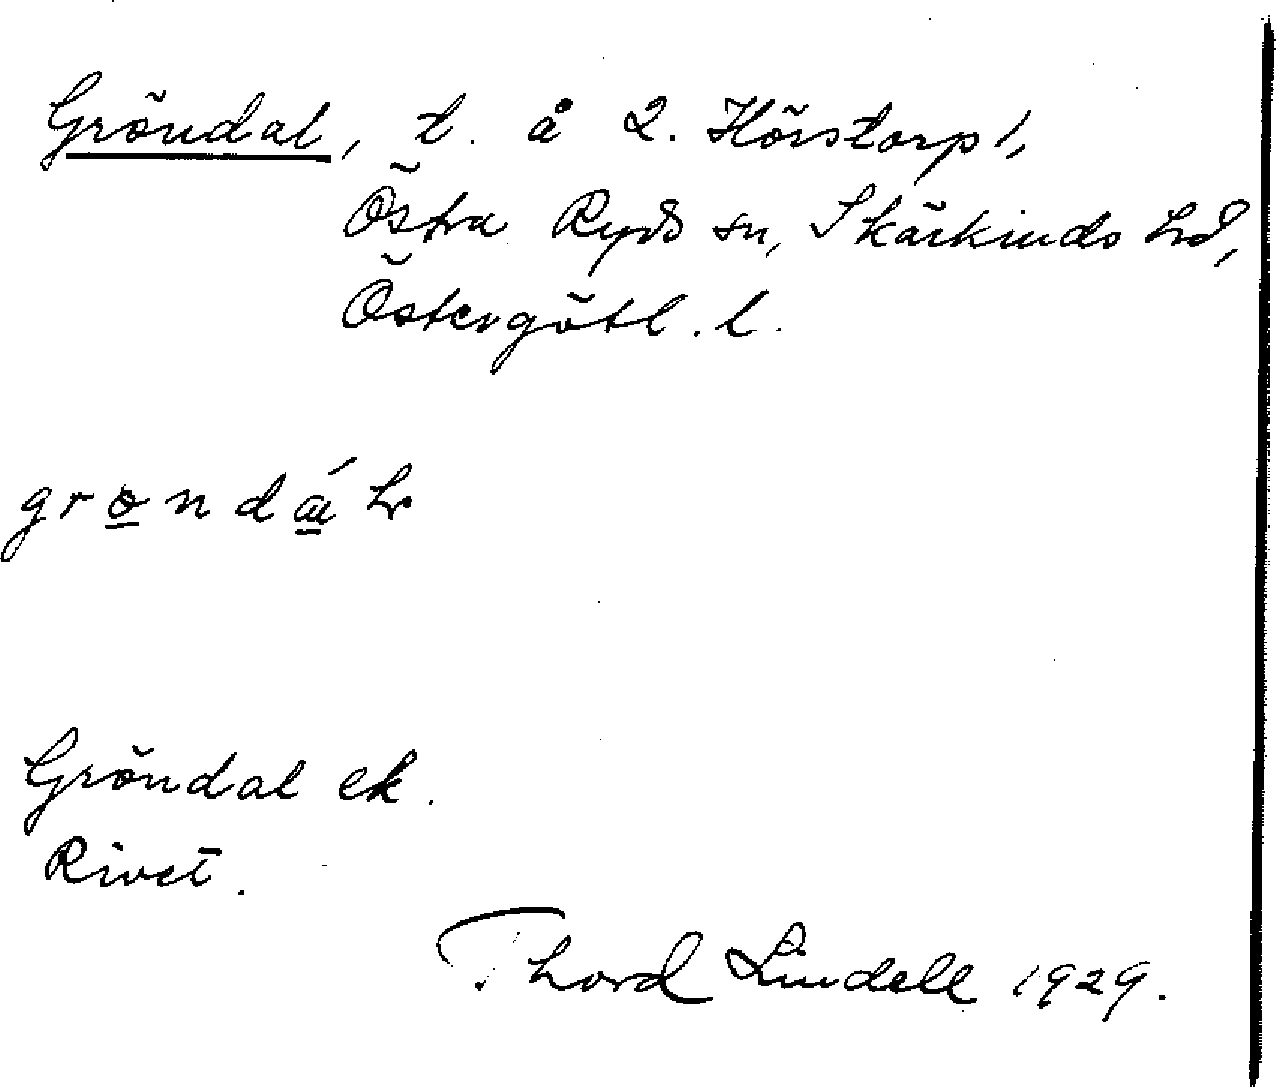 Gröndal, t. å 2. Hörstorp 1,
Östra Ryds sn, Skärkinds hd,
Östergötl. l.
Gröndal ek.
Rivet.
Thord Lindell 1929.